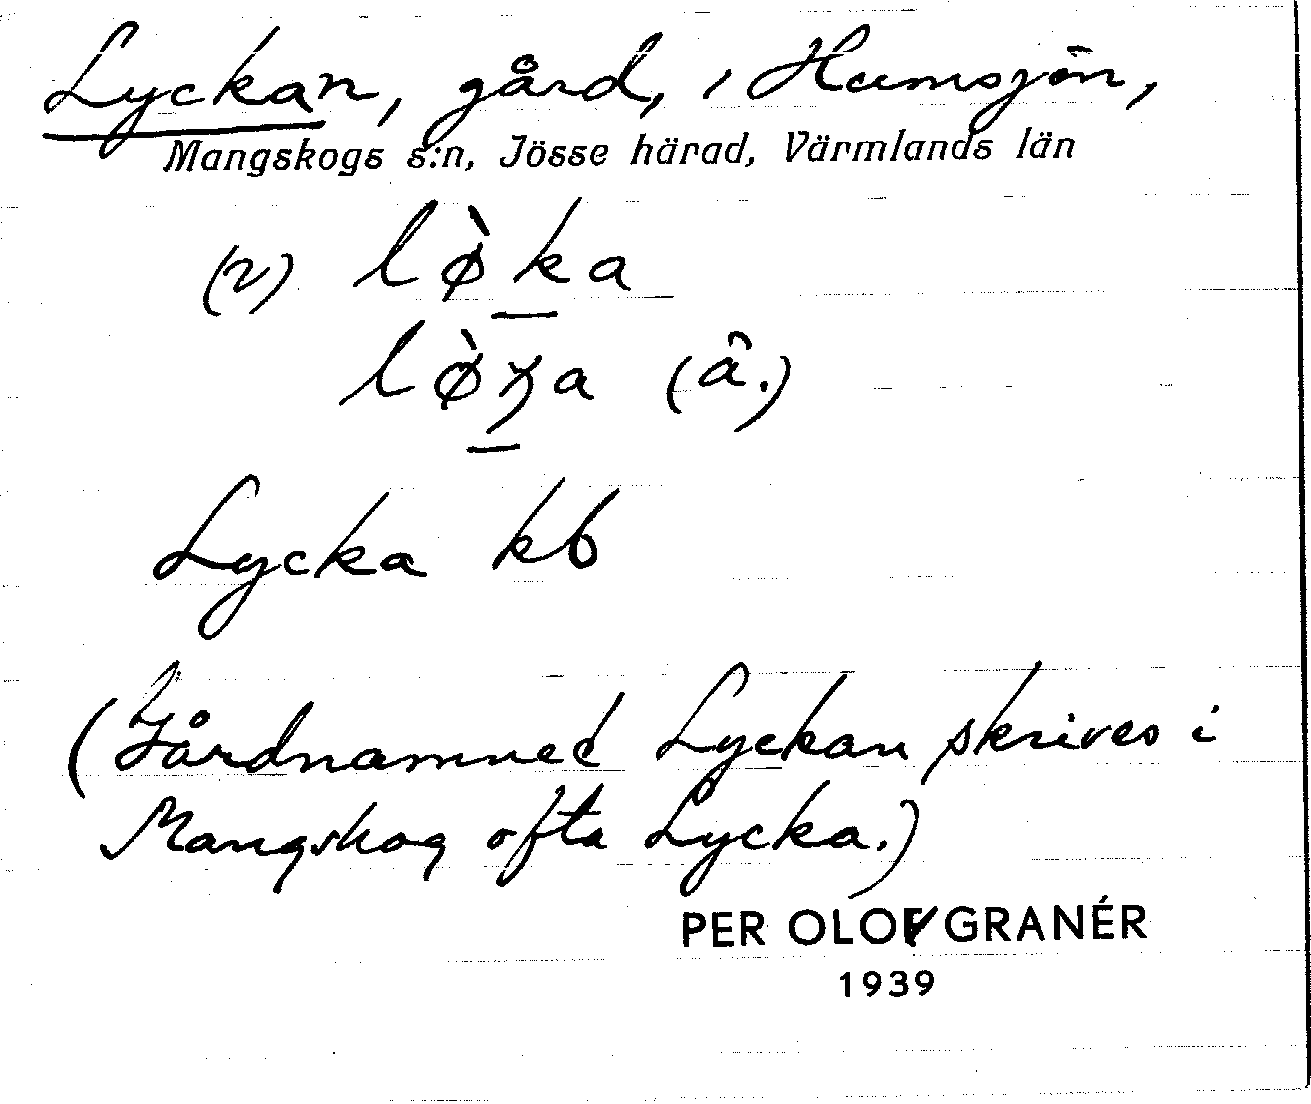 Lyckan, gård, i Humsjön,
Mangskogs s:n, Jösse härad, Värmlands län
(2) lø̀ka
lø̀ꞣa (â.)
Lycka kb
(Gårdnamnet Lyckan skrives i
Mangskog ofta Lycka.)
PER OLOF GRANÉR
1939